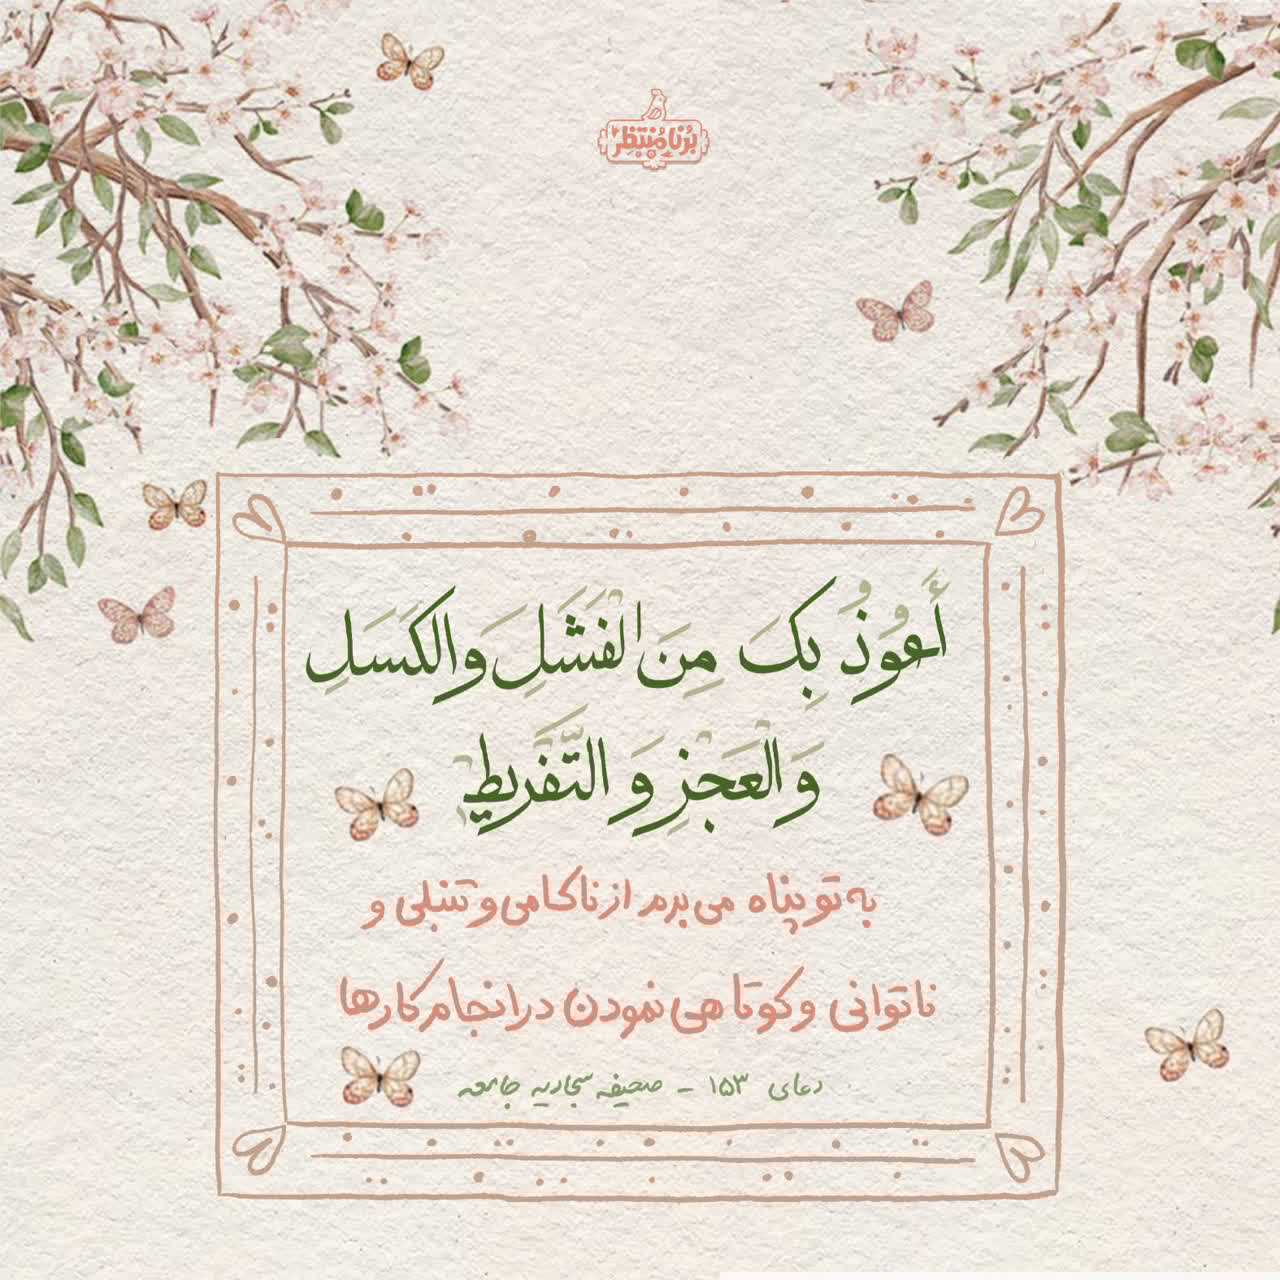 برنا منتظر
أَعُوذُ بِکَ مِنَ الْفَشَلِ وَالکَسَلِ
وَالْعَجْزِ وَ التَّفْرِیطِ
به تو پناه می‌برم از ناکامی و تنبلی و
ناتوانی و کوتاهی نمودن در انجام کارها
دعای ۱۵۳ - صحیفه سجادیه جامعه